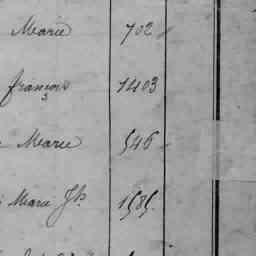 Marie 702
françois 1403
Marie 546
Marie Jh. 1585.